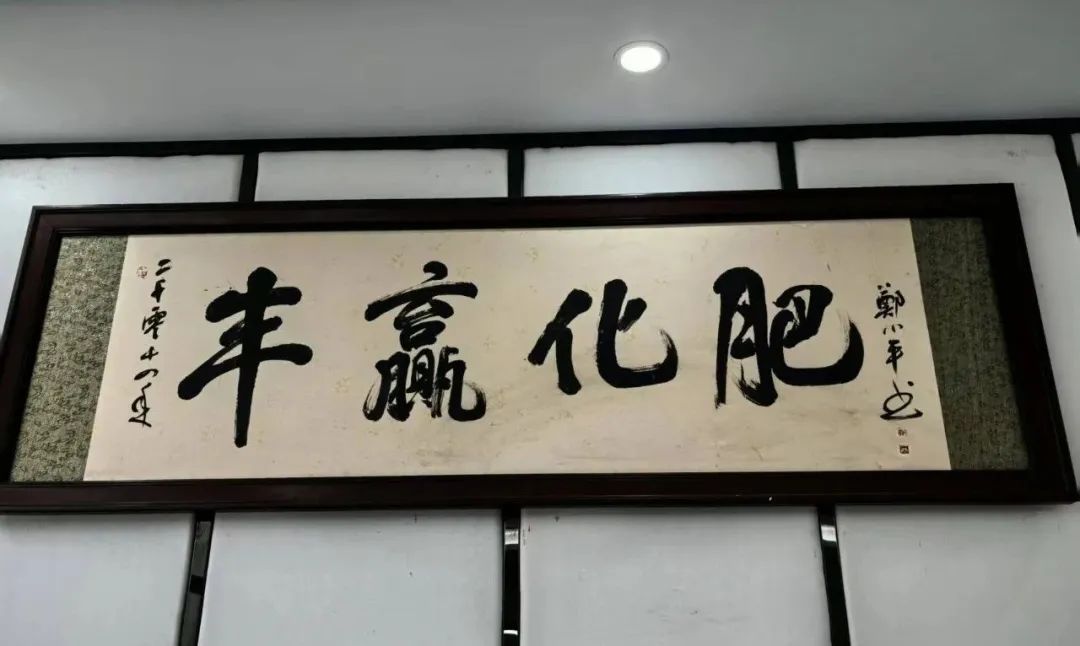 二千零十四年
丰赢化肥
鄭小平书